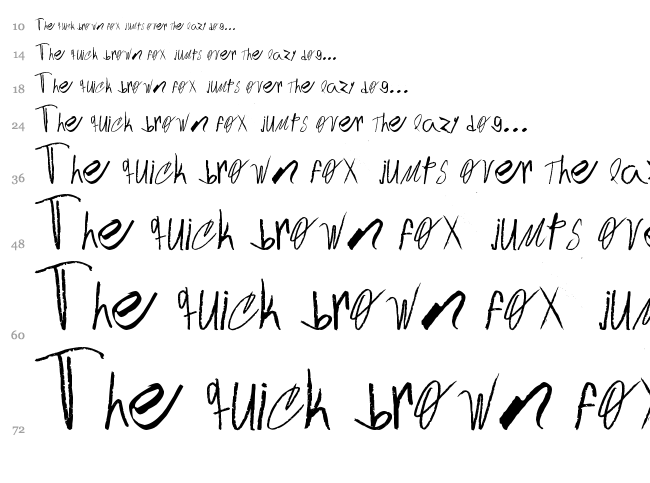 10 The quick brown fox jumps over the lazy dog...
14 The quick brown fox jumps over the lazy dog...
18 The quick brown fox jumps over the lazy dog...
24 The quick brown fox jumps over the lazy dog...
36 The quick brown fox jumps over the laz
48 The quick brown fox jumps ove
60 The quick brown fox jum
72 The quick brown fox